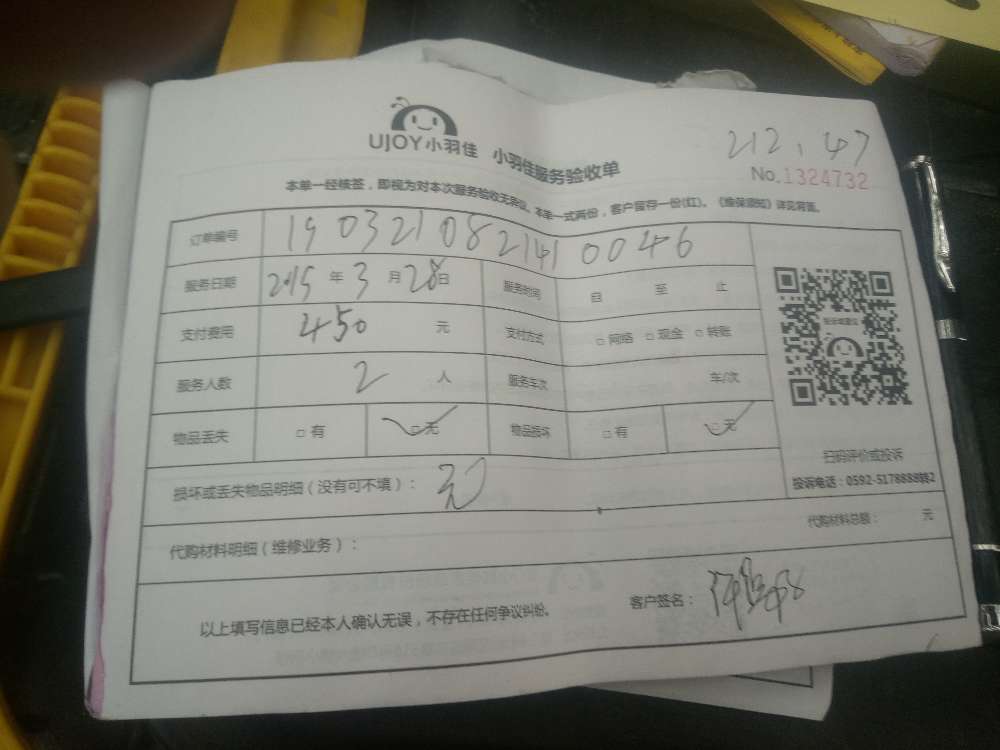 UJOY小羽佳 小羽佳服务验收单
212.47
No.1324732
本单一经核签，即视为对本次服务验收无异议。本单一式两份，客户留存一份(红)。《维保须知》详见背面。
订单编号 1903210821410046
服务日期 2015年3月28日 服务时间 自 至 止
支付费用 450 元 支付方式 □网络 □现金 □转账
服务人数 2 人 服务车次 车/次
物品丢失 □有 □无 物品损坏 □有 □无
扫码评价或投诉
投诉电话：0592-5178888转2
损坏或丢失物品明细（没有可不填）： 无
代购材料明细（维修业务）： 代购材料总额： 元
以上填写信息已经本人确认无误，不存在任何争议纠纷。 客户签名：